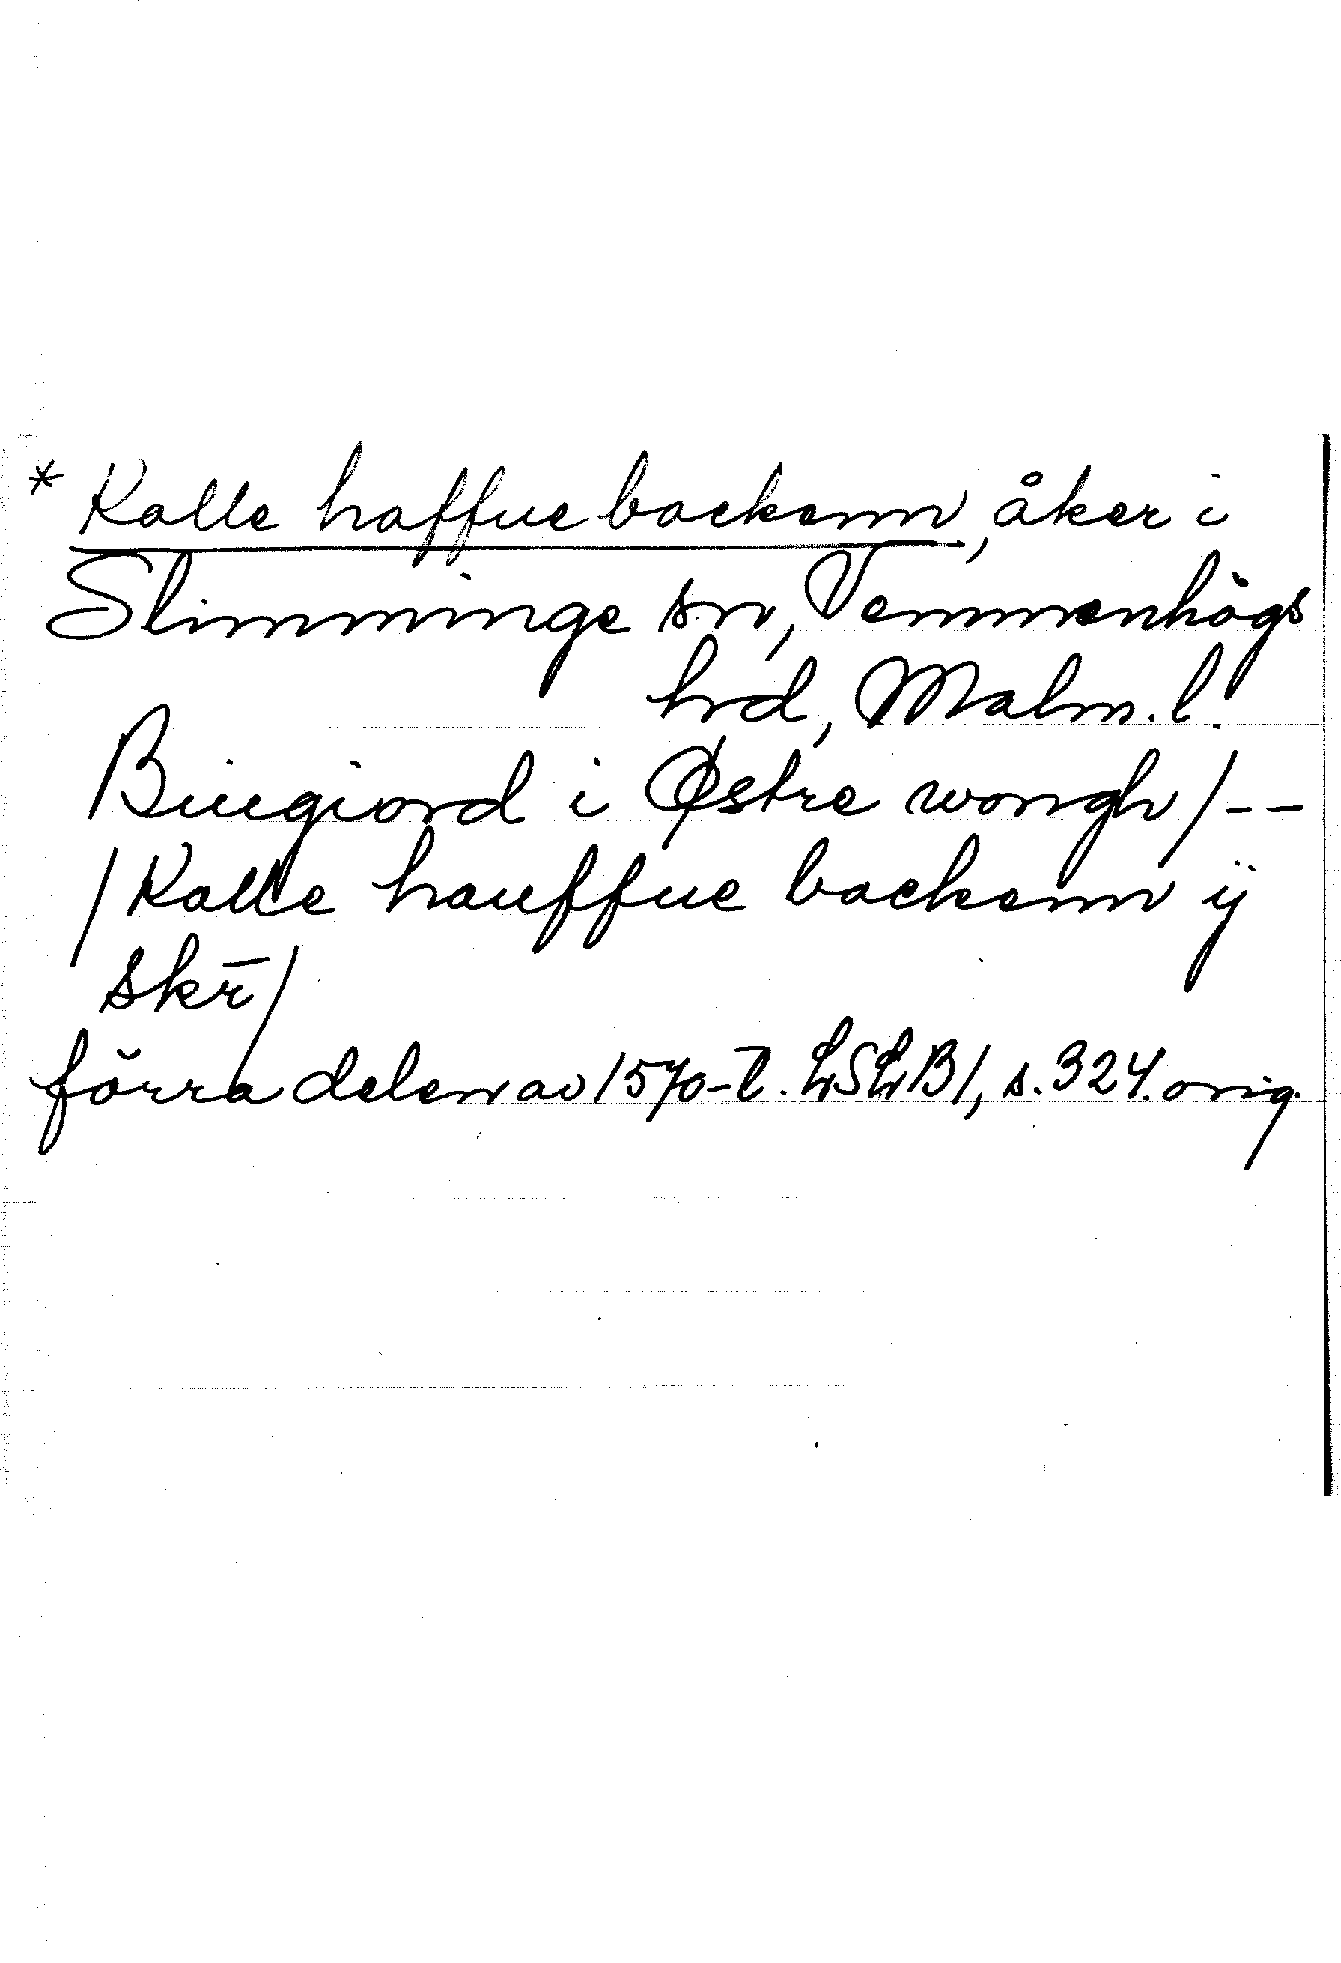 * Kalle haffue backenn, åker i
Slimminge sn, Vemmenhögs
hd, Malm. l.
Biugiord i Østre wongh / - -
/ Kalle hauffue backenn ij
skr̄ /
förra delen av 1570-t. LSLB1, s. 324. orig.